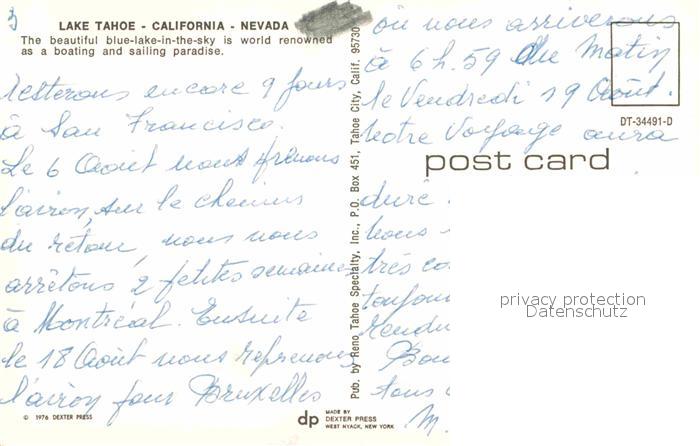 LAKE TAHOE - CALIFORNIA - NEVADA
The beautiful blue-lake-in-the-sky is world renowned
as a boating and sailing paradise.
resterons encore 9 jours
à San Francisco.
Le 6 Août nous prenons
l'avion, sur le chemin
du retour, nous nous
arrêtons 2 petites semaines
à Montréal. Ensuite
le 18 Août nous reprenons
l'avion pour Bruxelles
© 1976 DEXTER PRESS
dp MADE BY
DEXTER PRESS
WEST NYACK, NEW YORK
Pub. by Reno Tahoe Specialty, Inc., P.O. Box 451, Tahoe City, Calif. 95730
où nous arriverons
à 6h.59 du Matin
le Vendredi 19 Août.
Notre Voyage aura
DT-34491-D
post card
duré
nous
très
toujours
rendu
Bon
tous
M.
privacy protection
Datenschutz